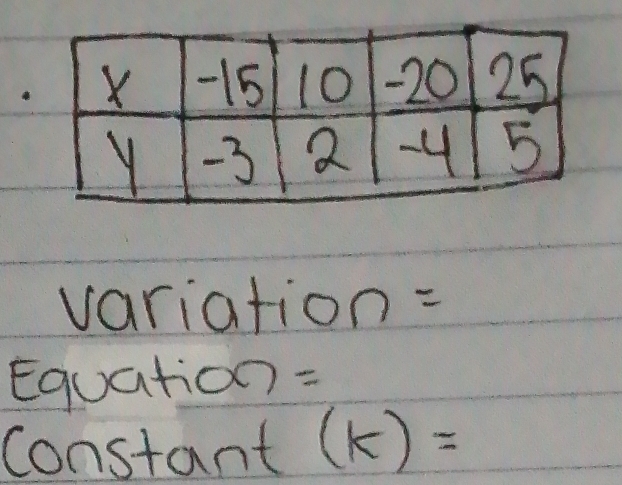 X -15 10 -20 25
Y -3 2 -4 5
Variation =
Equation =
Constant (K) =